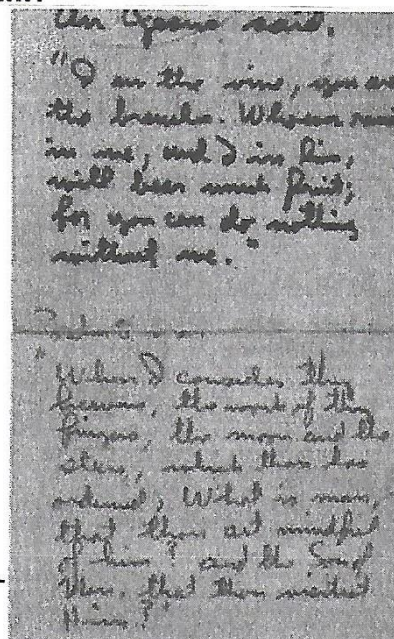 As Jesus said,
"I am the vine, you are
the branches. Whoever remains
in me, and I in him,
will bear much fruit;
for you can do nothing
without me."
"When I consider Thy
heavens, the work of Thy
fingers, the moon and the
stars, which thou has
ordained; What is man,
that thou art mindful
of him? and the Son of
Man, that thou visitest
Him?"